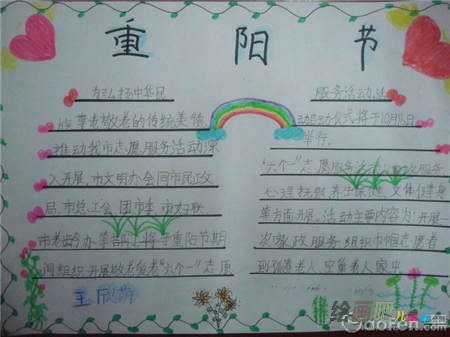 重阳节
为弘扬中华民
族尊老敬老的传统美德
推动我市志愿服务活动深
入开展,市文明办会同市民政
局,市总工会,团市委,市妇联,
市老龄办等部门将于重阳节期
间组织开展敬老爱老"六个一"志愿
服务活动,活
动启动仪式将于10月15日
举行。
"六个一"志愿服务活动
心理抚慰,养生保健,文体健身
等方面开展,活动主要内容为:开展一
次家政服务,组织巾帼志愿者
到孤寡老人,空巢老人家中
王欣
绘画吧
aofen.com